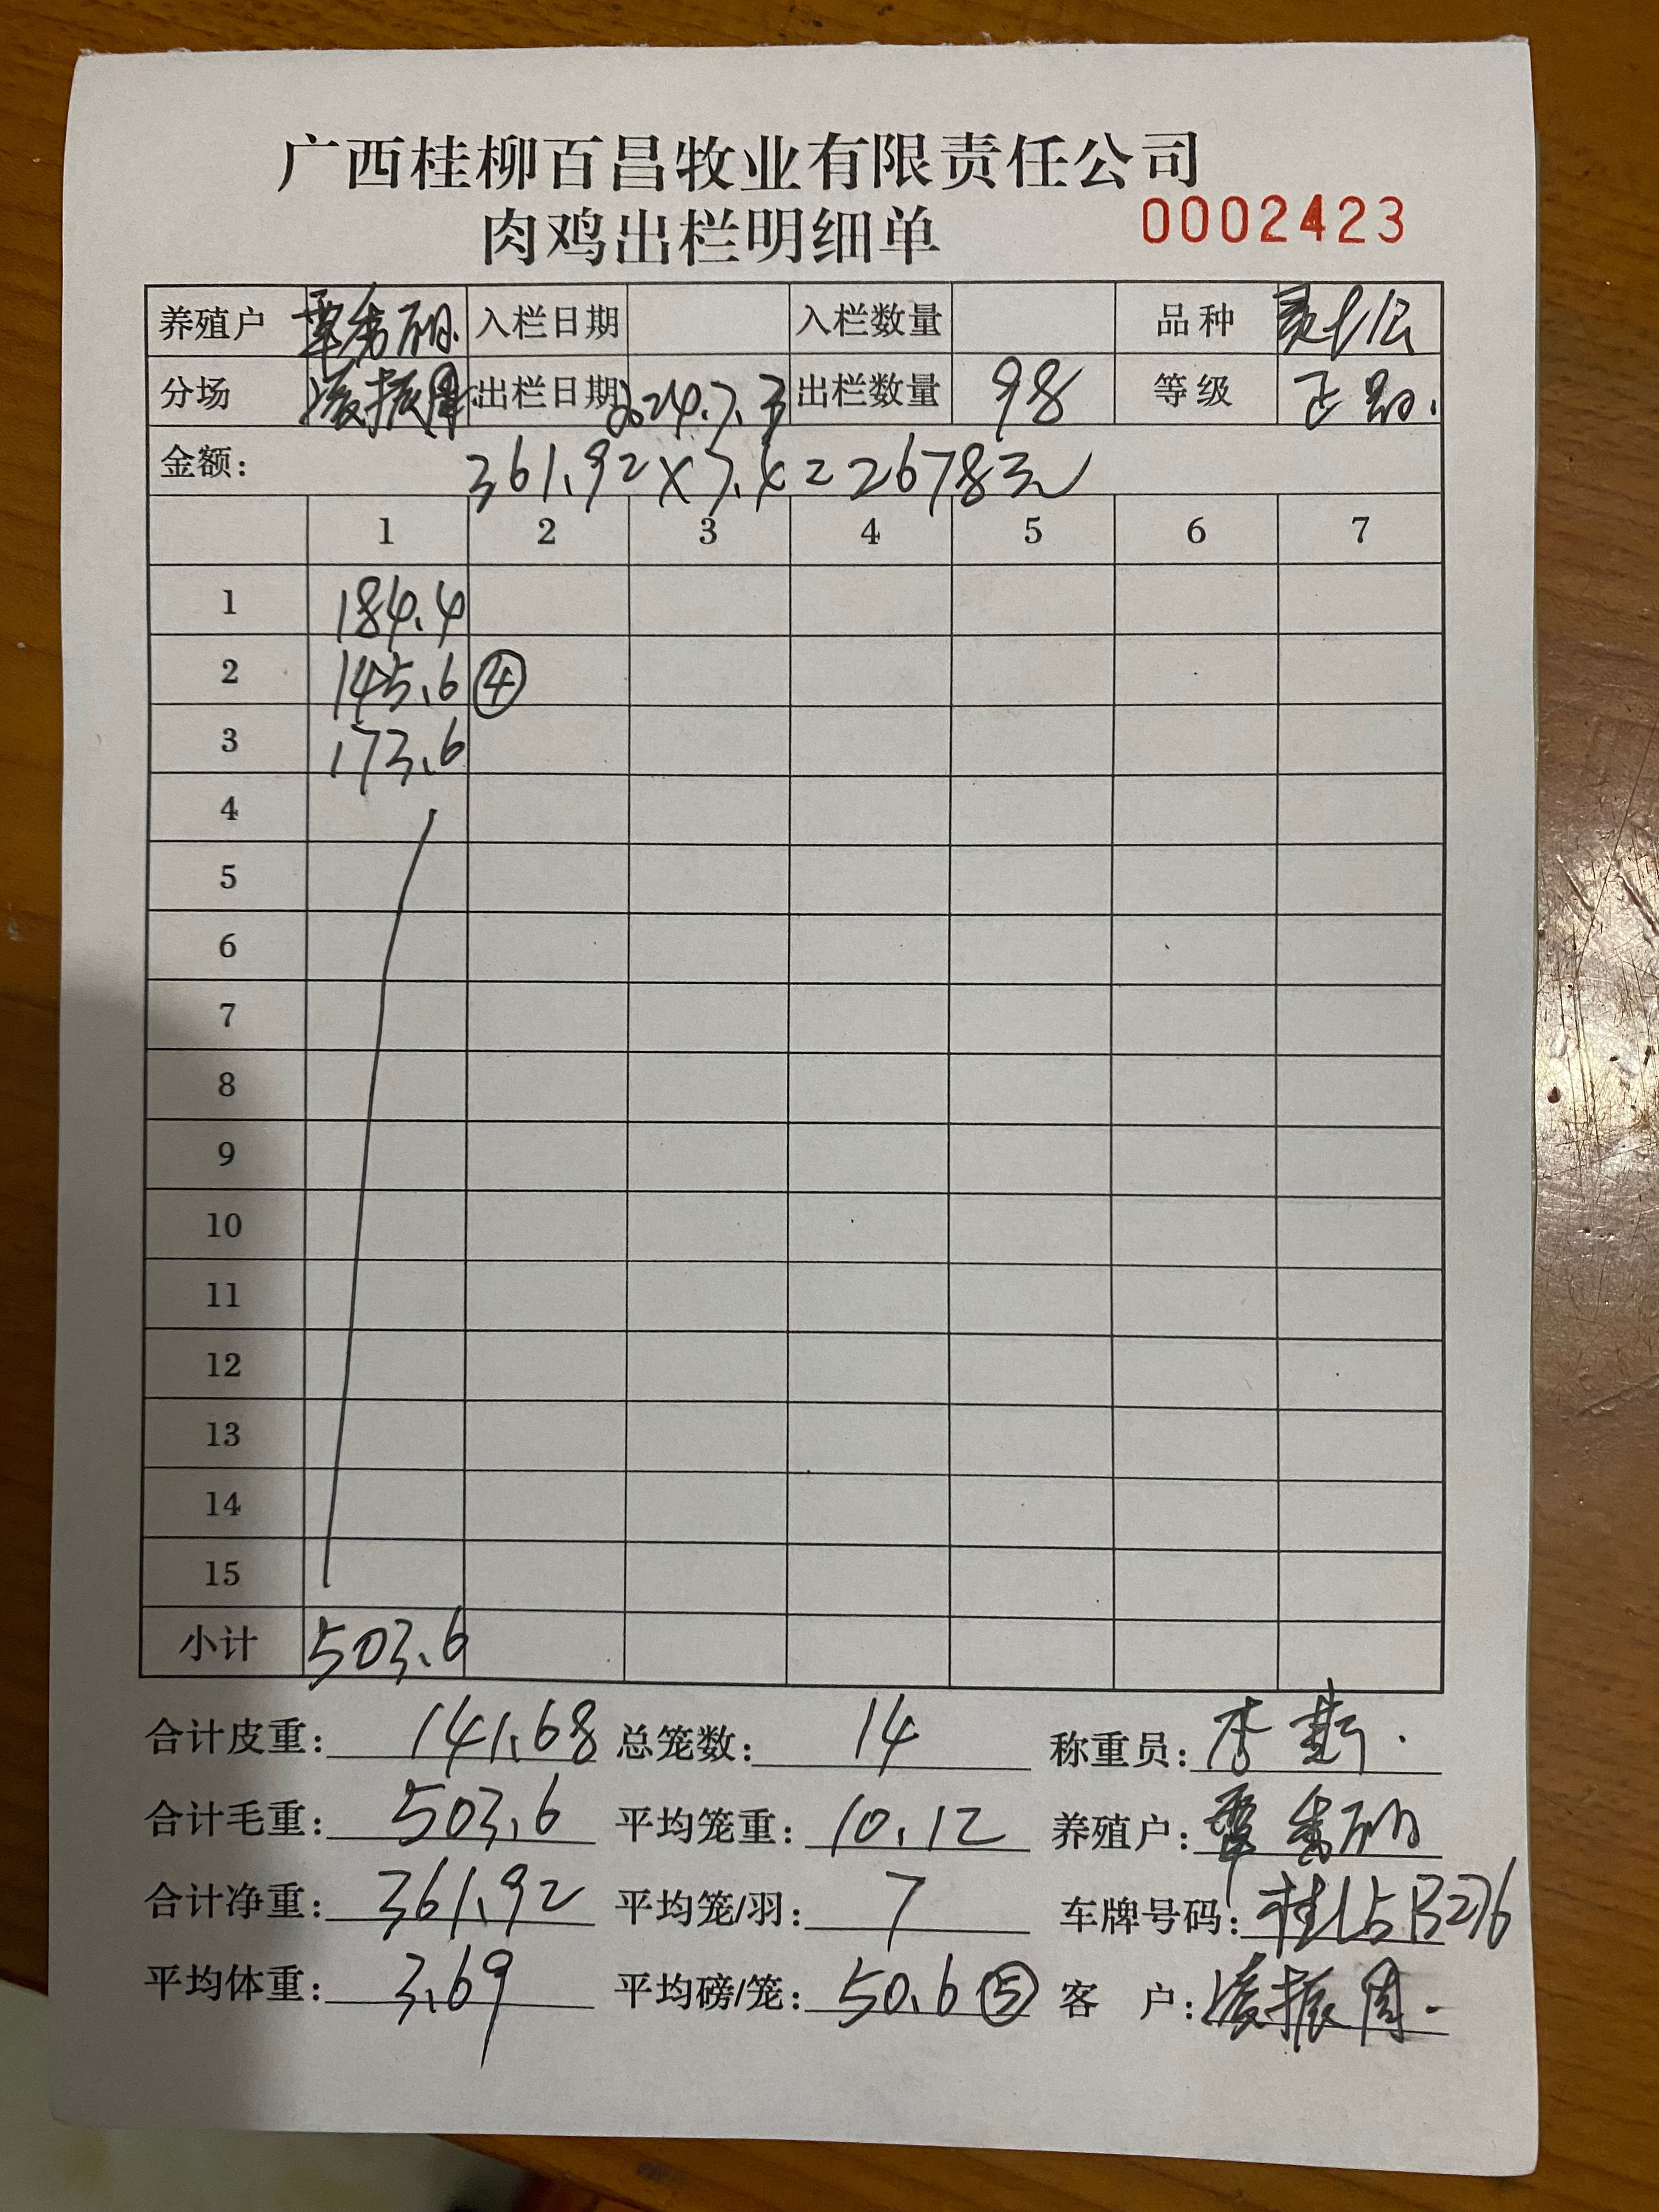 广西桂柳百昌牧业有限责任公司
肉鸡出栏明细单 0002423
养殖户 覃秀丽 入栏日期 入栏数量 品种
分场 凌振周 出栏日期 2024.7.3 出栏数量 98 等级 正品.
金额: 361.92×7.4=2678元
1 2 3 4 5 6 7
1 184.4
2 145.6 ④
3 173.6
4
5
6
7
8
9
10
11
12
13
14
15
小计 503.6
合计皮重: 141.68 总笼数: 14 称重员: 李
合计毛重: 503.6 平均笼重: 10.12 养殖户: 覃秀丽
合计净重: 361.92 平均笼/羽: 7 车牌号码:
平均体重: 3.69 平均磅/笼: 50.6 ⑤ 客 户: 凌振周.